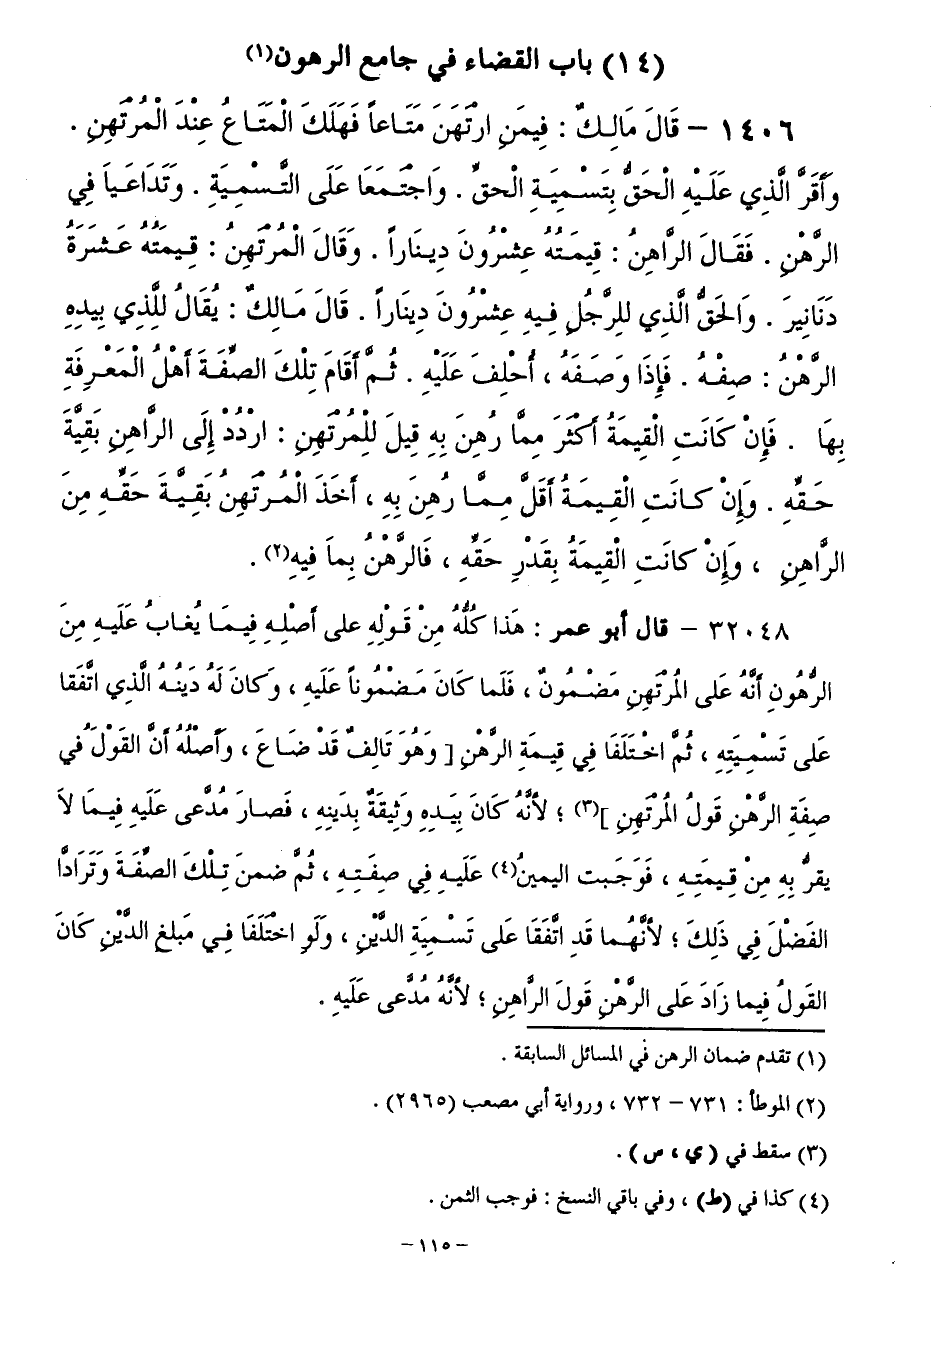 (١٤) باب القضاء في جامع الرهون(١)
١٤٠٦ – قَالَ مَالِكٌ : فِيمَنِ ارْتَهَنَ مَتَاعاً فَهَلَكَ الْمَتَاعُ عِنْدَ الْمُرْتَهِنِ .
وَأَقَرَّ الَّذِي عَلَيْهِ الْحَقُّ بِتَسْمِيَةِ الْحَقِّ . وَاجْتَمَعَا عَلَى التَّسْمِيَةِ . وَتَدَاعَيَا فِي
الرَّهْنِ . فَقَالَ الرَّاهِنُ : قِيمَتُهُ عِشْرُونَ دِينَاراً . وَقَالَ الْمُرْتَهِنُ : قِيمَتُهُ عَشَرَةُ
دَنَانِيرَ . وَالحَقُّ الَّذِي لِلرَّجُلِ فِيهِ عِشْرُونَ دِينَاراً . قَالَ مَالِكٌ : يُقَالُ لِلَّذِي بِيَدِهِ
الرَّهْنُ : صِفْهُ . فَإِذَا وَصَفَهُ ، أُحْلِفَ عَلَيْهِ . ثُمَّ أَقَامَ تِلْكَ الصِّفَةَ أَهْلُ الْمَعْرِفَةِ
بِهَا . فَإِنْ كَانَتِ الْقِيمَةُ أَكْثَرَ مِمَّا رُهِنَ بِهِ قِيلَ لِلْمُرْتَهِنِ : ارْدُدْ إِلَى الرَّاهِنِ بَقِيَّةَ
حَقِّهِ . وَإِنْ كَانَتِ الْقِيمَةُ أَقَلَّ مِمَّا رُهِنَ بِهِ ، أَخَذَ الْمُرْتَهِنُ بَقِيَّةَ حَقِّهِ مِنَ
الرَّاهِنِ ، وَإِنْ كَانَتِ الْقِيمَةُ بِقَدْرِ حَقِّهِ ، فَالرَّهْنُ بِمَا فِيهِ(٢) .
٣٢٠٤٨ – قال أبو عمر : هَذا كُلُّهُ مِنْ قَولِهِ على أصْلِهِ فِيمَا يُغابُ عَلَيهِ مِنَ
الرُّهُونِ أنَّهُ عَلى المُرْتَهِنِ مَضْمُونٌ ، فَلَما كَانَ مَضْمُوناً عَلَيهِ ، وَكانَ لَهُ دَينُهُ الَّذِي اتَّفَقا
عَلى تَسْمِيَتِهِ ، ثُمَّ اخْتَلَفَا فِي قِيمَةِ الرَّهْنِ [ وَهُوَ تَالِفٌ قَدْ ضَاعَ ، وَأصْلُهُ أنَّ القَوْلَ فِي
صِفَةِ الرَّهْنِ قَولُ المُرْتَهِنِ ](٣) ؛ لأنَّهُ كَانَ بِيَدِهِ وَثِيقَةٌ بِدَينِهِ ، فَصارَ مُدَّعى عَلَيهِ فِيمَا لاَ
يقرُّ بِهِ مِنْ قِيمَتِهِ ، فَوَجَبت اليمينُ(٤) عَلَيهِ فِي صِفَتِهِ ، ثُمَّ ضمنَ تِلْكَ الصِّفَةَ وَتَرَادَّا
الفَضْلَ فِي ذَلِكَ ؛ لأنَّهُما قَدِ اتَّفَقَا عَلى تَسْمِيَةِ الدَّيْنِ ، وَلَوِ اخْتَلَفَا فِي مَبلغِ الدَّيْنِ كَانَ
القَولُ فِيما زَادَ عَلى الرَّهْنِ قَولَ الرَّاهِنِ ؛ لأنَّهُ مُدَّعى عَلَيهِ .
(١) تقدم ضمان الرهن في المسائل السابقة .
(٢) الموطأ : ٧٣١ – ٧٣٢ ، ورواية أبي مصعب (٢٩٦٥) .
(٣) سقط في (ي ، س) .
(٤) كذا في (ط) ، وفي باقي النسخ : فوجب الثمن .
– ١١٥ –